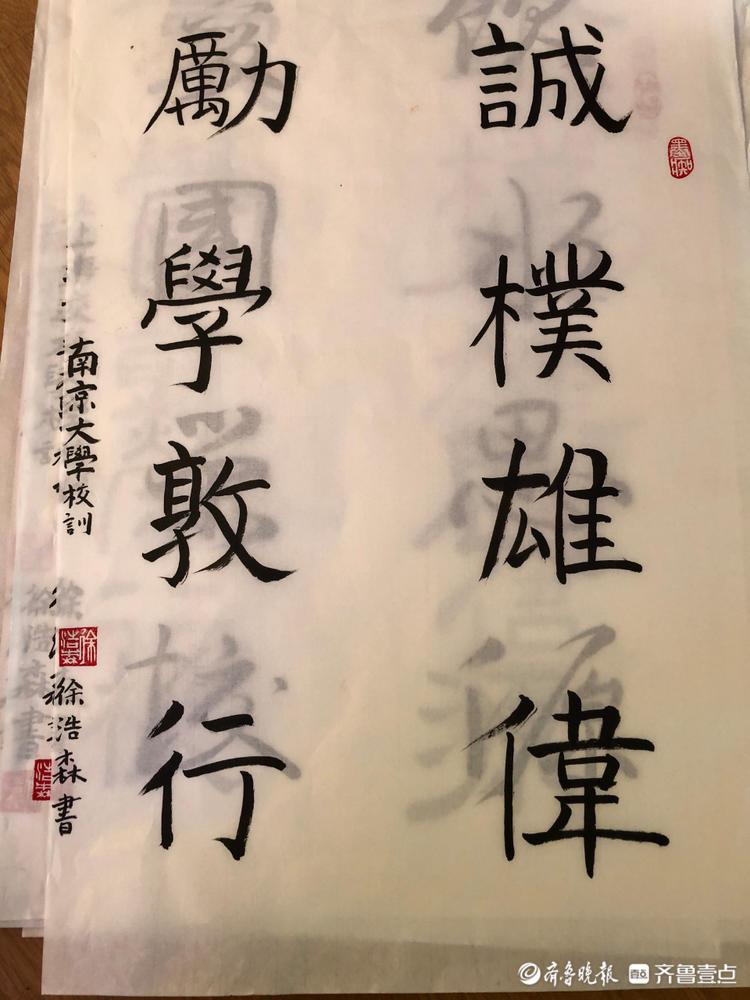 誠樸雄偉
勵學敦行
南京大學校訓
徐浩森書
齐鲁晚报 齐鲁壹点